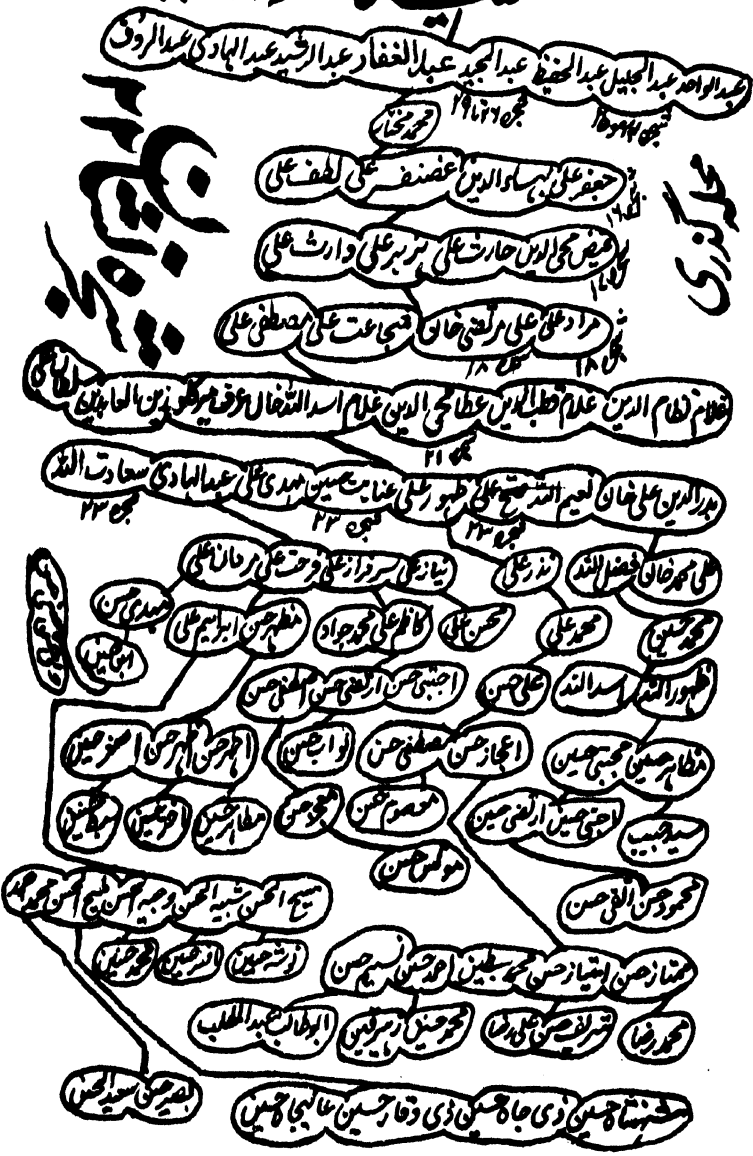 عبدالواحد عبدالجلیل عبدالحفیظ عبدالمجید عبدالغفار عبدالرشید عبدالہادی عبدالروف
شجرہ ۲۶ تا ۲۹
محمد مختار
شجرہ نشان ۲۲
محلہ گذری
جعفر علی بہاءالدین غضنفر علی لطف علی
فیض محی الدین حارث علی ببر علی وارث علی
مراد علی علی مرتضیٰ خان شجاعت علی مصطفیٰ علی
شجرہ ۱۸ شجرہ ۱۸
غلام نظام الدین غلام قطب الدین عطا محی الدین غلام اسداللہ خان عرف میر کلو زین العابدین
شجرہ ۲۱
بدرالدین علی خان نعیم اللہ فتح علی ظہور علی عنایت حسین مہدی علی عبدالہادی سعادت اللہ
شجرہ ۲۳ شجرہ ۲۳ شجرہ ۲۳
علی محمد خان فضل اللہ نذر علی نیاز علی سرفراز علی فرحت علی مردان علی
محمد حسین محمد علی محسن علی کاظم علی محمد جواد مظہر حسن ابراہیم علی مہدی حسن
ابن حسین
ظہور اللہ اسد اللہ علی حسن اجتبیٰ حسن ارتضیٰ حسن اصطفیٰ حسن
مظاہر حسین مجتبیٰ حسین اعجاز حسن مصطفیٰ حسن نواب حسن اظہر حسن اطہر حسن اصغر حسین
سید حبیب اجتبیٰ حسین ارتضیٰ حسین معصوم حسن محمود حسن مظاہر حسین اختر حسین
مونس حسن
محمود حسن القی حسن
مسیح الحسن شبیہ الحسن وجیہ الحسن
نوشہ حسین افسر حسین محمد حسین
ممتاز حسن امتیاز حسن محمد سبطین احمد حسن نسیم حسن
محمد رضا شریف حسن علی رضا محمد حنیف زہیر قین ابوطالب عبدالمطلب
شہنشاہ حسین ذی جاہ حسین ذی وقار حسین عالیجاہ حسین
بصیر حسن سعید الحسن